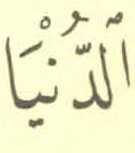 ٱلدُّنْيَا